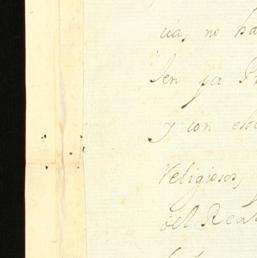 cia, no ha
sen pa
y con est
Religiosos,
del Real